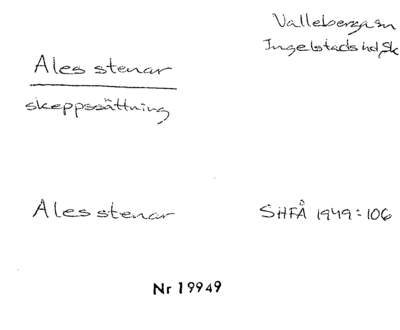 Valleberga sn
Ingelstads hd, Sk
Ales stenar
skeppssättning
Ales stenar SHFÅ 1949:106
Nr 19949